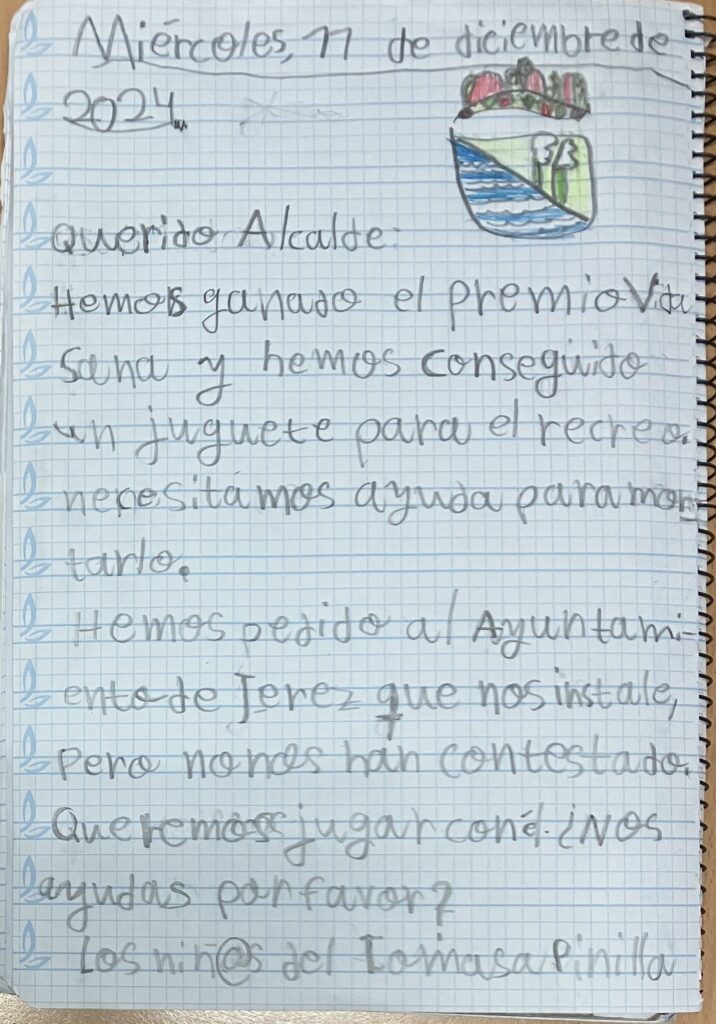 Miércoles, 11 de diciembre de
2024
Querido Alcalde:
Hemos ganado el premio Vida
Sana y hemos conseguido
un juguete para el recreo.
necesitamos ayuda para mon-
tarlo.
Hemos pedido al Ayuntami-
ento de Jerez que nos instale,
pero no nos han contestado.
Queremos jugar con él. ¿Nos
ayudas por favor?
Los niñ@s del Tomasa Pinilla